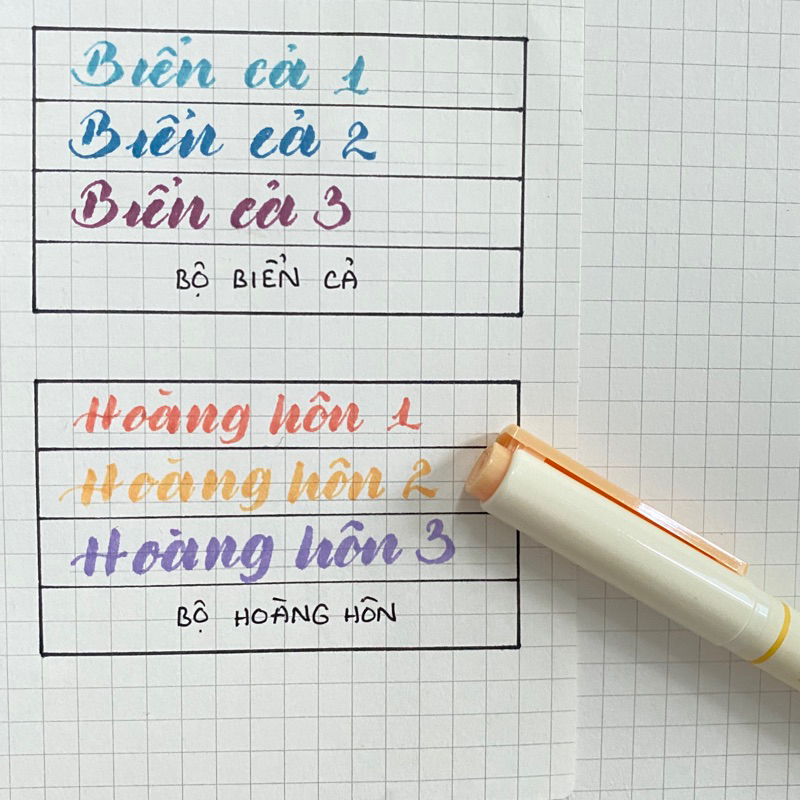 Biển cả 1
Biển cả 2
Biển cả 3
BỘ BIỂN CẢ
Hoàng hôn 1
Hoàng hôn 2
Hoàng hôn 3
BỘ HOÀNG HÔN